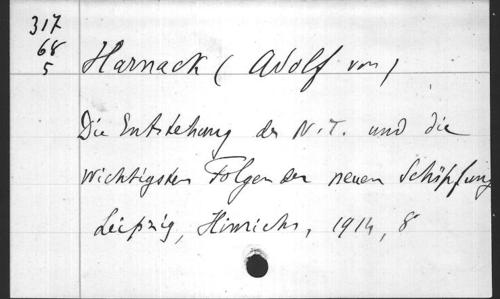 317
68
5
Harnack (Adolf von)
Die Entstehung des N.T. und die
wichtigsten Folgen der neuen Schöpfung
Leipzig, Hinrichs, 1914, 8